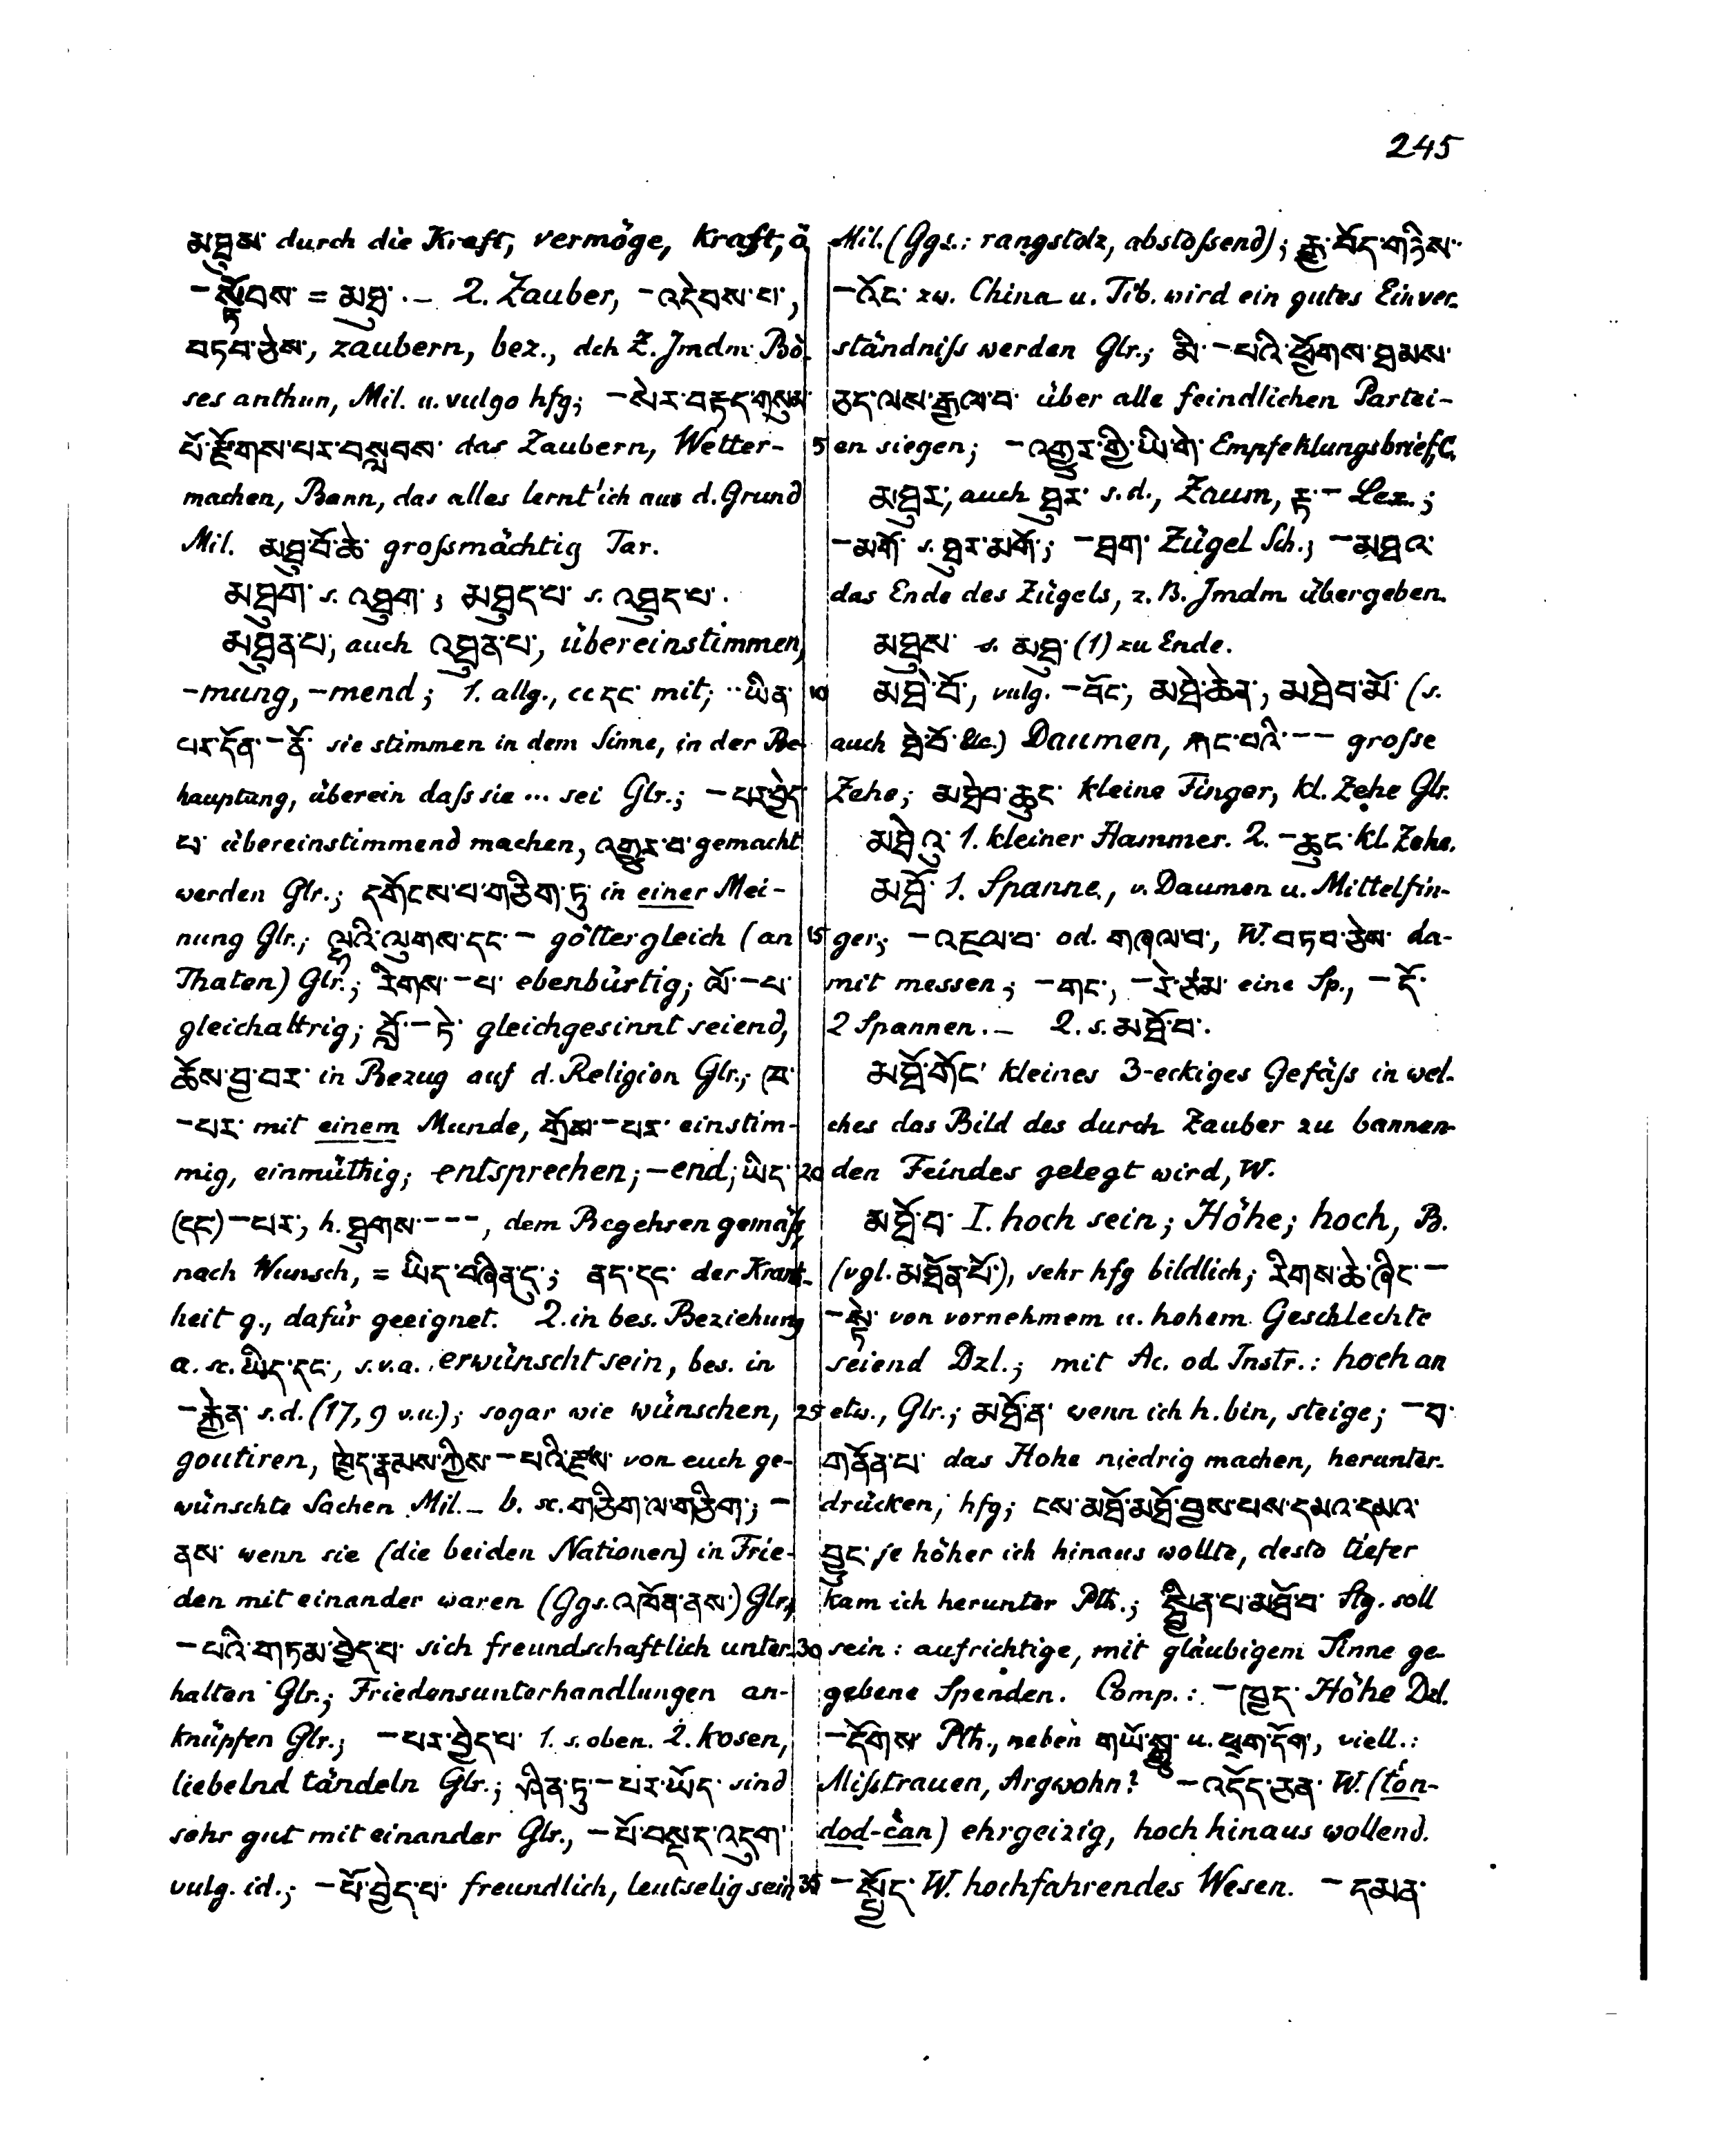 245
མཐུས་ durch die Kraft, vermöge, kraft, ö
–སྟོབས་ = མཐུ་. – 2. Zauber, –འདེབས་པ་,
བཏབ་ཅེས་, zaubern, bez., dch Z. Jmdm Bö-
ses anthun, Mil. u. vulgo hfg; –སེར་བརྟད་གསུམ་
པོ་རྫོགས་པར་བསླབས་ das Zaubern, Wetter-
machen, Bann, das alles lernt' ich aus d. Grund
Mil. མཐུ་བོ་ཆེ་ großmächtig Tar.
མཐུག་ s. འཐུག་; མཐུད་པ་ s. འཐུད་པ་.
མཐུན་པ་, auch འཐུན་པ་, übereinstimmen,
–mung, –mend; 1. allg., cc དང་ mit; ··ཡིན་
པར་དོན་–ནོ་ sie stimmen in dem Sinne, in der Be-
hauptung, überein daß sie ... sei Glr.; –པར་བྱེད་
པ་ übereinstimmend machen, འགྱུར་བ་ gemacht
werden Glr.; དགོངས་པ་གཅིག་ཏུ་ in einer Mei-
nung Glr.; ལྷའི་ལུགས་དང་– göttergleich (an
Thaten) Glr.; རིགས་–པ་ ebenbürtig; ལོ་–པ་
gleichaltrig; བློ་–ཏེ་ gleichgesinnt seiend,
ཆོས་བྱ་བར་ in Bezug auf d. Religion Glr.; ཁ་
–པར་ mit einem Munde, གྲོས་–པར་ einstim-
mig, einmüthig; entsprechen; –end; ཡིད་
(དང་)–པར་, h. ཐུགས་–––, dem Begehren gemäß,
nach Wunsch, = ཡིད་བཞིན་དུ་; ནད་དང་ der Krank-
heit g., dafür geeignet. 2. in bes. Beziehung
a. sc. ཡིད་དང་, s.v.a. erwünscht sein, bes. in
–རྐྱེན་ s.d. (17, 9 v.u.); sogar wie wünschen,
goutiren, ཁྱེད་རྣམས་ཀྱིས་–པའི་རྫས་ von euch ge-
wünschte Sachen Mil. – b. sc. གཅིག་ལ་གཅིག་; –
ནས་ wenn sie (die beiden Nationen) in Frie-
den mit einander waren (Ggs. འཁོན་ནས་) Glr.;
–པའི་གཏམ་བྱེད་པ་ sich freundschaftlich unter-
halten Glr.; Friedensunterhandlungen an-
knüpfen Glr.; –པར་བྱེད་པ་ 1. s. oben. 2. kosen,
liebelnd tändeln Glr.; ཤིན་ཏུ་–པར་ཡོད་ sind
sehr gut mit einander Glr., –པོ་བསྡད་འདུག་
vulg. id.; –པོ་བྱེད་པ་ freundlich, leutselig sein
Mil. (Ggs.: rangstolz, abstoßend); རྒྱ་བོད་གཉིས་··
–འོང་ zw. China u. Tib. wird ein gutes Einver-
ständniß werden Glr.; མི་–པའི་ཕྱོགས་ཐམས་
ཅད་ལས་རྒྱལ་བ་ über alle feindlichen Partei-
5 en siegen; –འགྱུར་གྱི་ཡི་གེ་ Empfehlungsbrief, C.
མཐུར་, auch ཐུར་ s.d., Zaum, རྟ་– Lex.;
–མགོ་ s. ཐུར་མགོ་; –ཐག་ Zügel Sch.; –མཐའ་
das Ende des Zügels, z.B. Jmdm übergeben.
མཐུས་ s. མཐུ་ (1) zu Ende.
10 མཐེ་བོ་, vulg. –བོང་, མཐེ་ཆེན་, མཐེབ་མོ་ (s.
auch ཐེ་བོ་ &c.) Daumen, རྐང་པའི་–– große
Zehe; མཐེབ་ཆུང་ kleine Finger, kl. Zehe Glr.
མཐེའུ་ 1. kleiner Hammer. 2. –ཆུང་ kl. Zehe.
མཐོ་ 1. Spanne, v. Daumen u. Mittelfin-
15 ger; –འཇལ་བ་ od. གཞལ་བ་, W. བཏབ་ཅེས་ da-
mit messen; –གང་, –རེ་ཙམ་ eine Sp., –དོ་
2 Spannen. – 2. s. མཐོ་བ་.
མཐོ་གོང་ kleines 3-eckiges Gefäß in wel-
ches das Bild des durch Zauber zu bannen-
20 den Feindes gelegt wird, W.
མཐོ་བ་ I. hoch sein; Höhe; hoch, B.
(vgl. མཐོན་པོ་), sehr hfg bildlich; རིགས་ཆེ་ཞིང་–
–སྟེ་ von vornehmem u. hohem Geschlechte
seiend Dzl.; mit Ac. od. Instr.: hoch an
25 etw., Glr.; མཐོ་ན་ wenn ich h. bin, steige; –བ་
གནོན་པ་ das Hohe niedrig machen, herunter-
drücken, hfg; ངས་མཐོ་མཐོ་བྱས་པས་དམའ་དམའ་
བྱུང་ je höher ich hinaus wollte, desto tiefer
kam ich herunter Pth.; སྦྱིན་པ་མཐོ་བ་ Stg. soll
30 sein: aufrichtige, mit gläubigem Sinne ge-
gebene Spenden. Comp.: –ཁྱད་ Höhe Dzl.
–དོགས་ Pth., neben གཡོ་སྒྱུ་ u. ཕྲག་དོག་, viell.:
Mißtrauen, Argwohn? –འདོད་ཅན་ W. (tón-
dod-čan) ehrgeizig, hoch hinaus wollend.
35 –སྤྱོད་ W. hochfahrendes Wesen. –དམན་